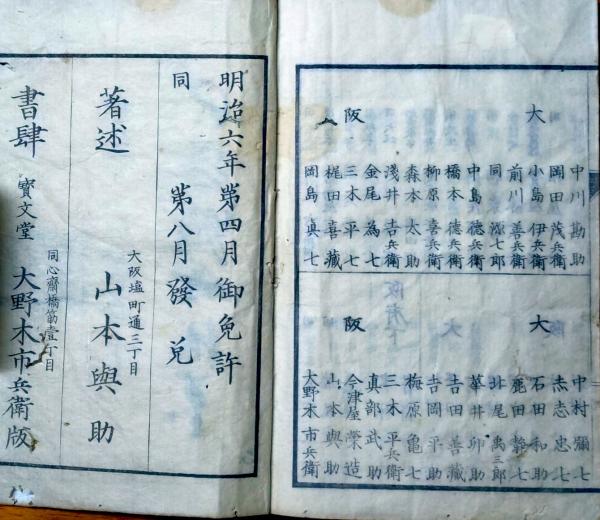 大阪
中川勘助
岡田茂兵衛
小島伊兵衛
前川善兵衛
同 源七郎
中島徳兵衛
橋本徳兵衛
柳原喜兵衛
森本太助
淺井吉兵衛
金尾為七
三木平七
梶田喜藏
岡島真七
大阪
中村彌七
赤志忠七
石田和助
鹿田靜七
北尾禹三郎
華井卯助
吉田善藏
吉岡平助
梅原亀七
三木平兵衛
真部武助
今津屋榮造
山本與助
大野木市兵衛
明治六年第四月御免許
同 第八月發兌
著述 大阪塩町通三丁目 山本與助
書肆 寳文堂 同心齋橋筋壹丁目 大野木市兵衛版